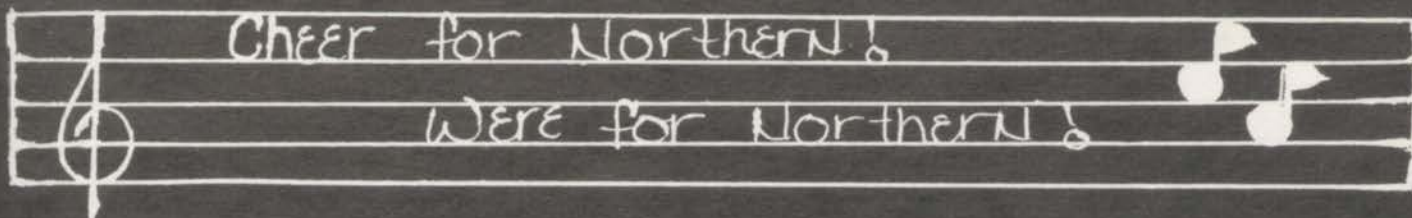 Cheer for Northern!
Were for Northern!